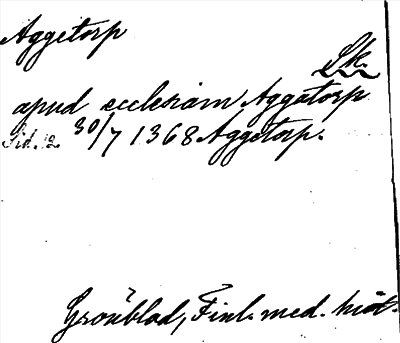 Aggetorp
Sk.
apud ecclesiam Aggatorp
Sid. 12 30/7 1368 Aggetorp.
Grönblad, Finl. med. hist.